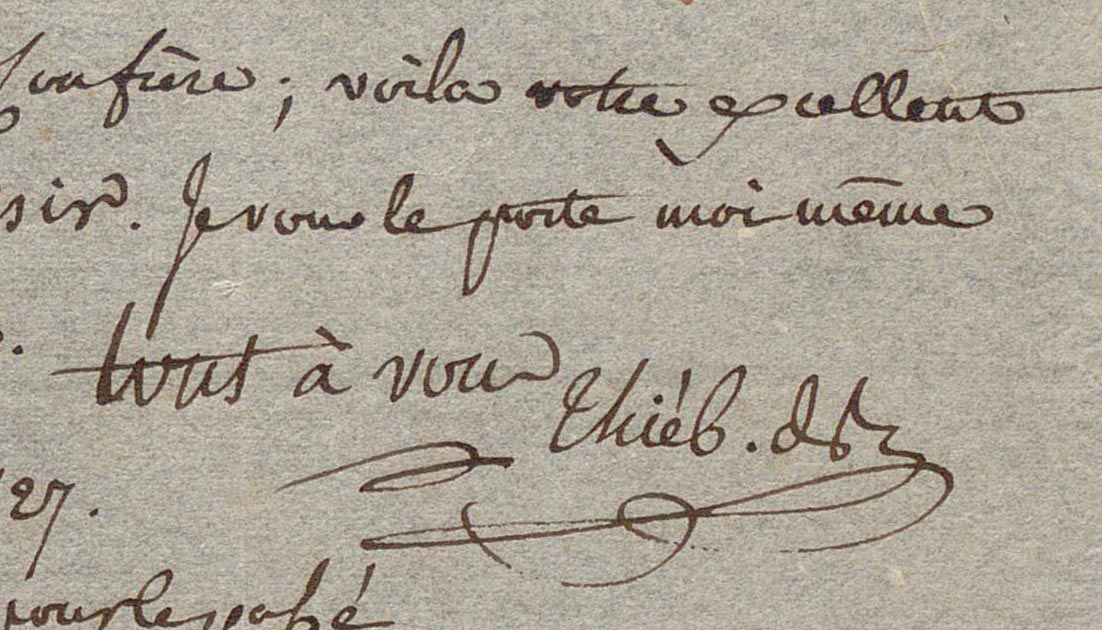 Confrère; voilà votre excellent
sir. Je vous le porte moi même
tout à vous
Thiéb. dBr
27.
pour le passé